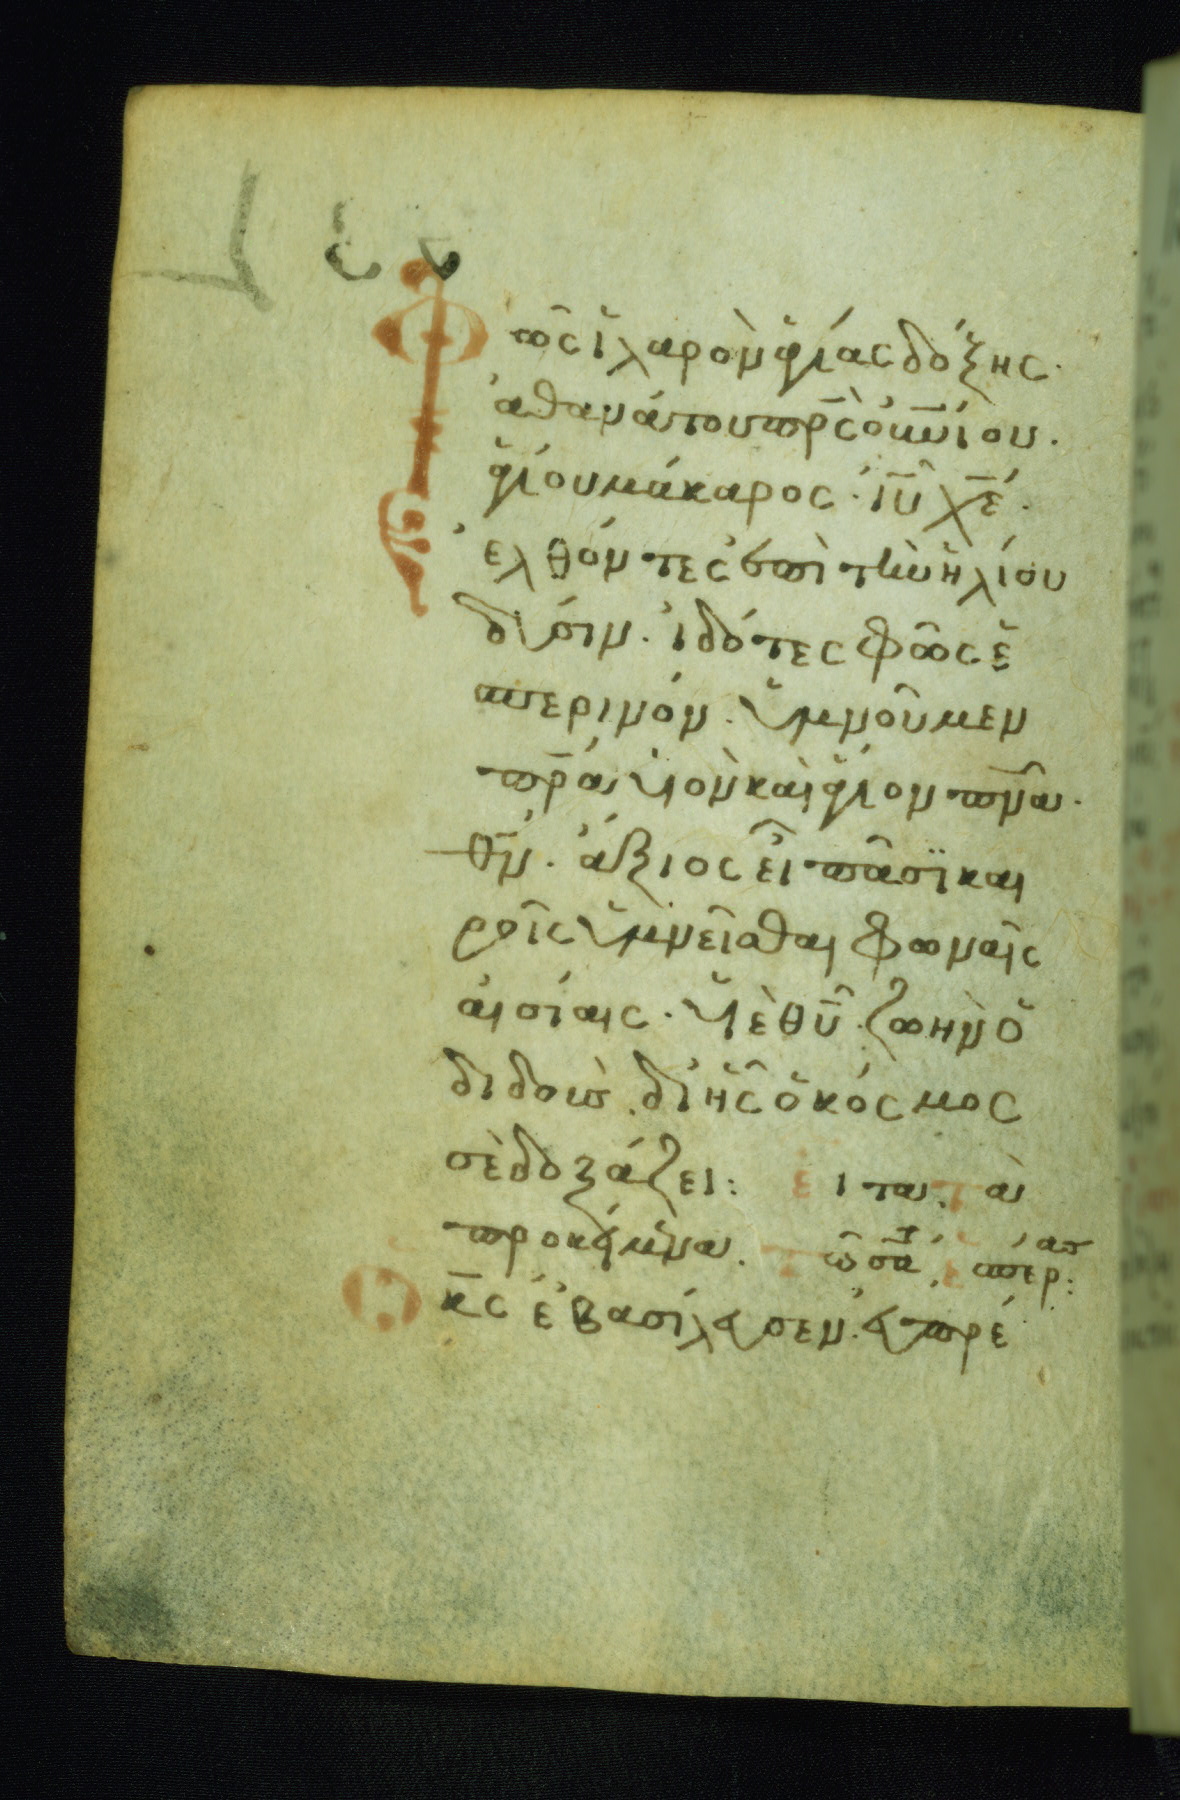 Φῶς ἱλαρὸν ἁγίας δόξης·
ἀθανάτου πρ̅ς οὐν̅ίου·
ἁγίου μάκαρος· ἰῦ χ̅ε̅·
ἐλθόντες ἐπὶ τὴν ἡλίου
δύσιν· ἰδότες φῶς ἑ
σπερινόν· ὑμνοῦμεν
πρ̅α υἱὸν καὶ ἅγιον πν̅α·
θ̅ν· ἄξιος εἶ ἐν πᾶσϊ και
ροῖς ὑμνεῖσθαι φωναῖς
αἰσίαις· υἱὲ θῦ· ζωὴν ὁ
διδούς· δι' ἧς ὁ κόσμος
σὲ δοξάζει: εἶτα τὰ
προκείμενα. τῶ σα ἑσπερ:
Ὁ κ̅ς ἐβασίλευσεν· εὐπρέ